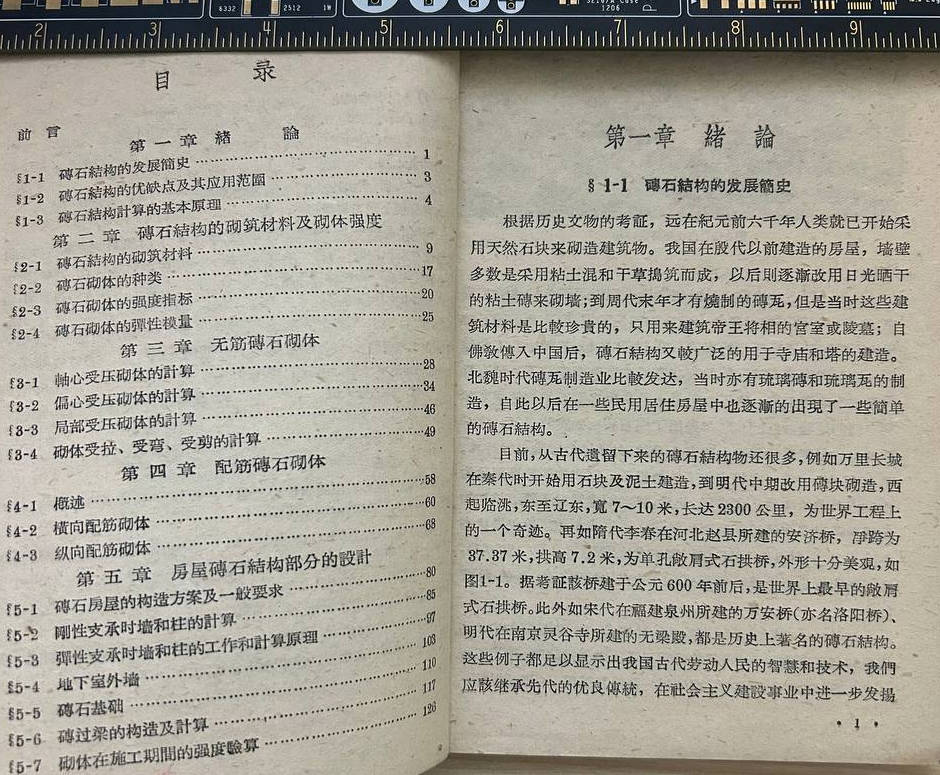 6332
2512
1W
1206
2 3 4 5 6 7 8 9
目 录
前言
第一章 緒 論
§1-1 磚石結构的发展簡史 1
§1-2 磚石結构的优缺点及其应用范圍 3
§1-3 磚石結构計算的基本原理 4
第二章 磚石結构的砌筑材料及砌体强度
§2-1 磚石結构的砌筑材料 9
§2-2 磚石砌体的种类 17
§2-3 磚石砌体的强度指标 20
§2-4 磚石砌体的彈性模量 25
第三章 无筋磚石砌体
§3-1 軸心受压砌体的計算 28
§3-2 偏心受压砌体的計算 34
§3-3 局部受压砌体的計算 46
§3-4 砌体受拉、受弯、受剪的計算 49
第四章 配筋磚石砌体
§4-1 概述 58
§4-2 橫向配筋砌体 60
§4-3 纵向配筋砌体 68
第五章 房屋磚石結构部分的設計
§5-1 磚石房屋的构造方案及一般要求 80
§5-2 剛性支承时墙和柱的計算 85
§5-3 彈性支承时墙和柱的工作和計算原理 97
§5-4 地下室外墙 103
§5-5 磚石基础 110
§5-6 磚过梁的构造及計算 117
§5-7 砌体在施工期間的强度驗算 126
第一章 緒 論
§ 1-1 磚石結构的发展簡史
根据历史文物的考証，远在紀元前六千年人类就已开始采
用天然石块来砌造建筑物。我国在殷代以前建造的房屋，墙壁
多数是采用粘土混和干草搗筑而成，以后則逐漸改用日光晒干
的粘土磚来砌墙；到周代末年才有燒制的磚瓦，但是当时这些建
筑材料是比較珍貴的，只用来建筑帝王将相的宮室或陵墓；自
佛敎傳入中国后，磚石結构又較广泛的用于寺庙和塔的建造。
北魏时代磚瓦制造业比較发达，当时亦有琉璃磚和琉璃瓦的制
造，自此以后在一些民用居住房屋中也逐漸的出現了一些簡单
的磚石結构。
目前，从古代遺留下来的磚石結构物还很多，例如万里长城
在秦代时开始用石块及泥土建造，到明代中期改用磚块砌造，西
起临洮，东至辽东，寬 7～10 米，长达 2300 公里，为世界工程上
的一个奇迹。再如隋代李春在河北赵县所建的安济桥，净跨为
37.37 米，拱高 7.2 米，为单孔敞肩式石拱桥，外形十分美观，如
图1-1。据考証該桥建于公元 600 年前后，是世界上最早的敞肩
式石拱桥。此外如宋代在福建泉州所建的万安桥（亦名洛阳桥）、
明代在南京灵谷寺所建的无梁殿，都是历史上著名的磚石結构。
这些例子都足以显示出我国古代劳动人民的智慧和技术，我們
应該継承先代的优良傳統，在社会主义建設事业中进一步发揚
• 1 •